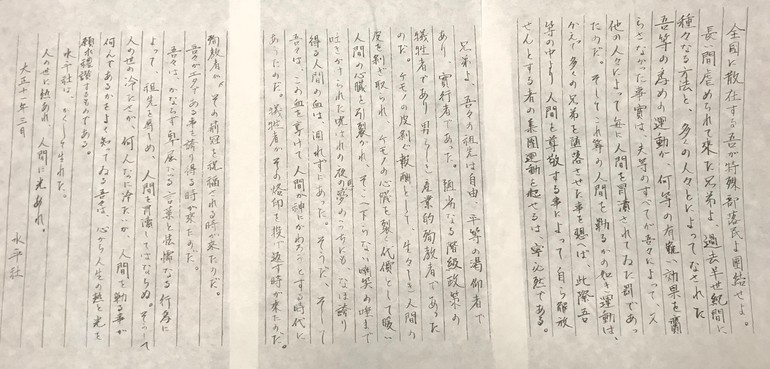 全国に散在する吾が特殊部落民よ団結せよ。
長い間虐められて来た兄弟よ、過去半世紀間に
種々なる方法と、多くの人々とによってなされた
吾等の為めの運動が、何等の有難い効果を齎
らさなかった事実は、夫等のすべてが吾々によって、又
他の人々によって毎に人間を冒涜されてゐた罰であっ
たのだ。そしてこれ等の人間を勦るかの如き運動は、
かえって多くの兄弟を堕落させた事を想へば、此際吾
等の中より人間を尊敬する事によって自ら解放
せんとする者の集団運動を起せるは、寧ろ必然である。
兄弟よ、吾々の祖先は自由、平等の渇仰者で
あり、実行者であった。陋劣なる階級政策の
犠牲者であり男らしき産業的殉教者であった
のだ。ケモノの皮剥ぐ報酬として、生々しき人間の
皮を剥ぎ取られ、ケモノの心臓を裂く代償として、暖い
人間の心臓を引裂かれ、そこへ下らない嘲笑の唾まで
吐きかけられた呪はれの夜の悪夢のうちにも、なほ誇り
得る人間の血は、涸れずにあった。そうだ、そして
吾々は、この血を享けて人間が神にかわろうとする時代に
あうたのだ。犠牲者がその烙印を投げ返す時が来たのだ。
殉教者が、その荊冠を祝福される時が来たのだ。
吾々がエタである事を誇り得る時が来たのだ。
吾々は、かならず卑屈なる言葉と怯懦なる行為に
よって、祖先を辱しめ、人間を冒涜してはならぬ。そうして
人の世の冷たさが、何んなに冷たいか、人間を勦る事が
何んであるかをよく知ってゐる吾々は、心から人生の熱と光を
願求禮讃するものである。
水平社は、かくして生れた。
人の世に熱あれ、人間に光あれ。
大正十一年三月
水平社